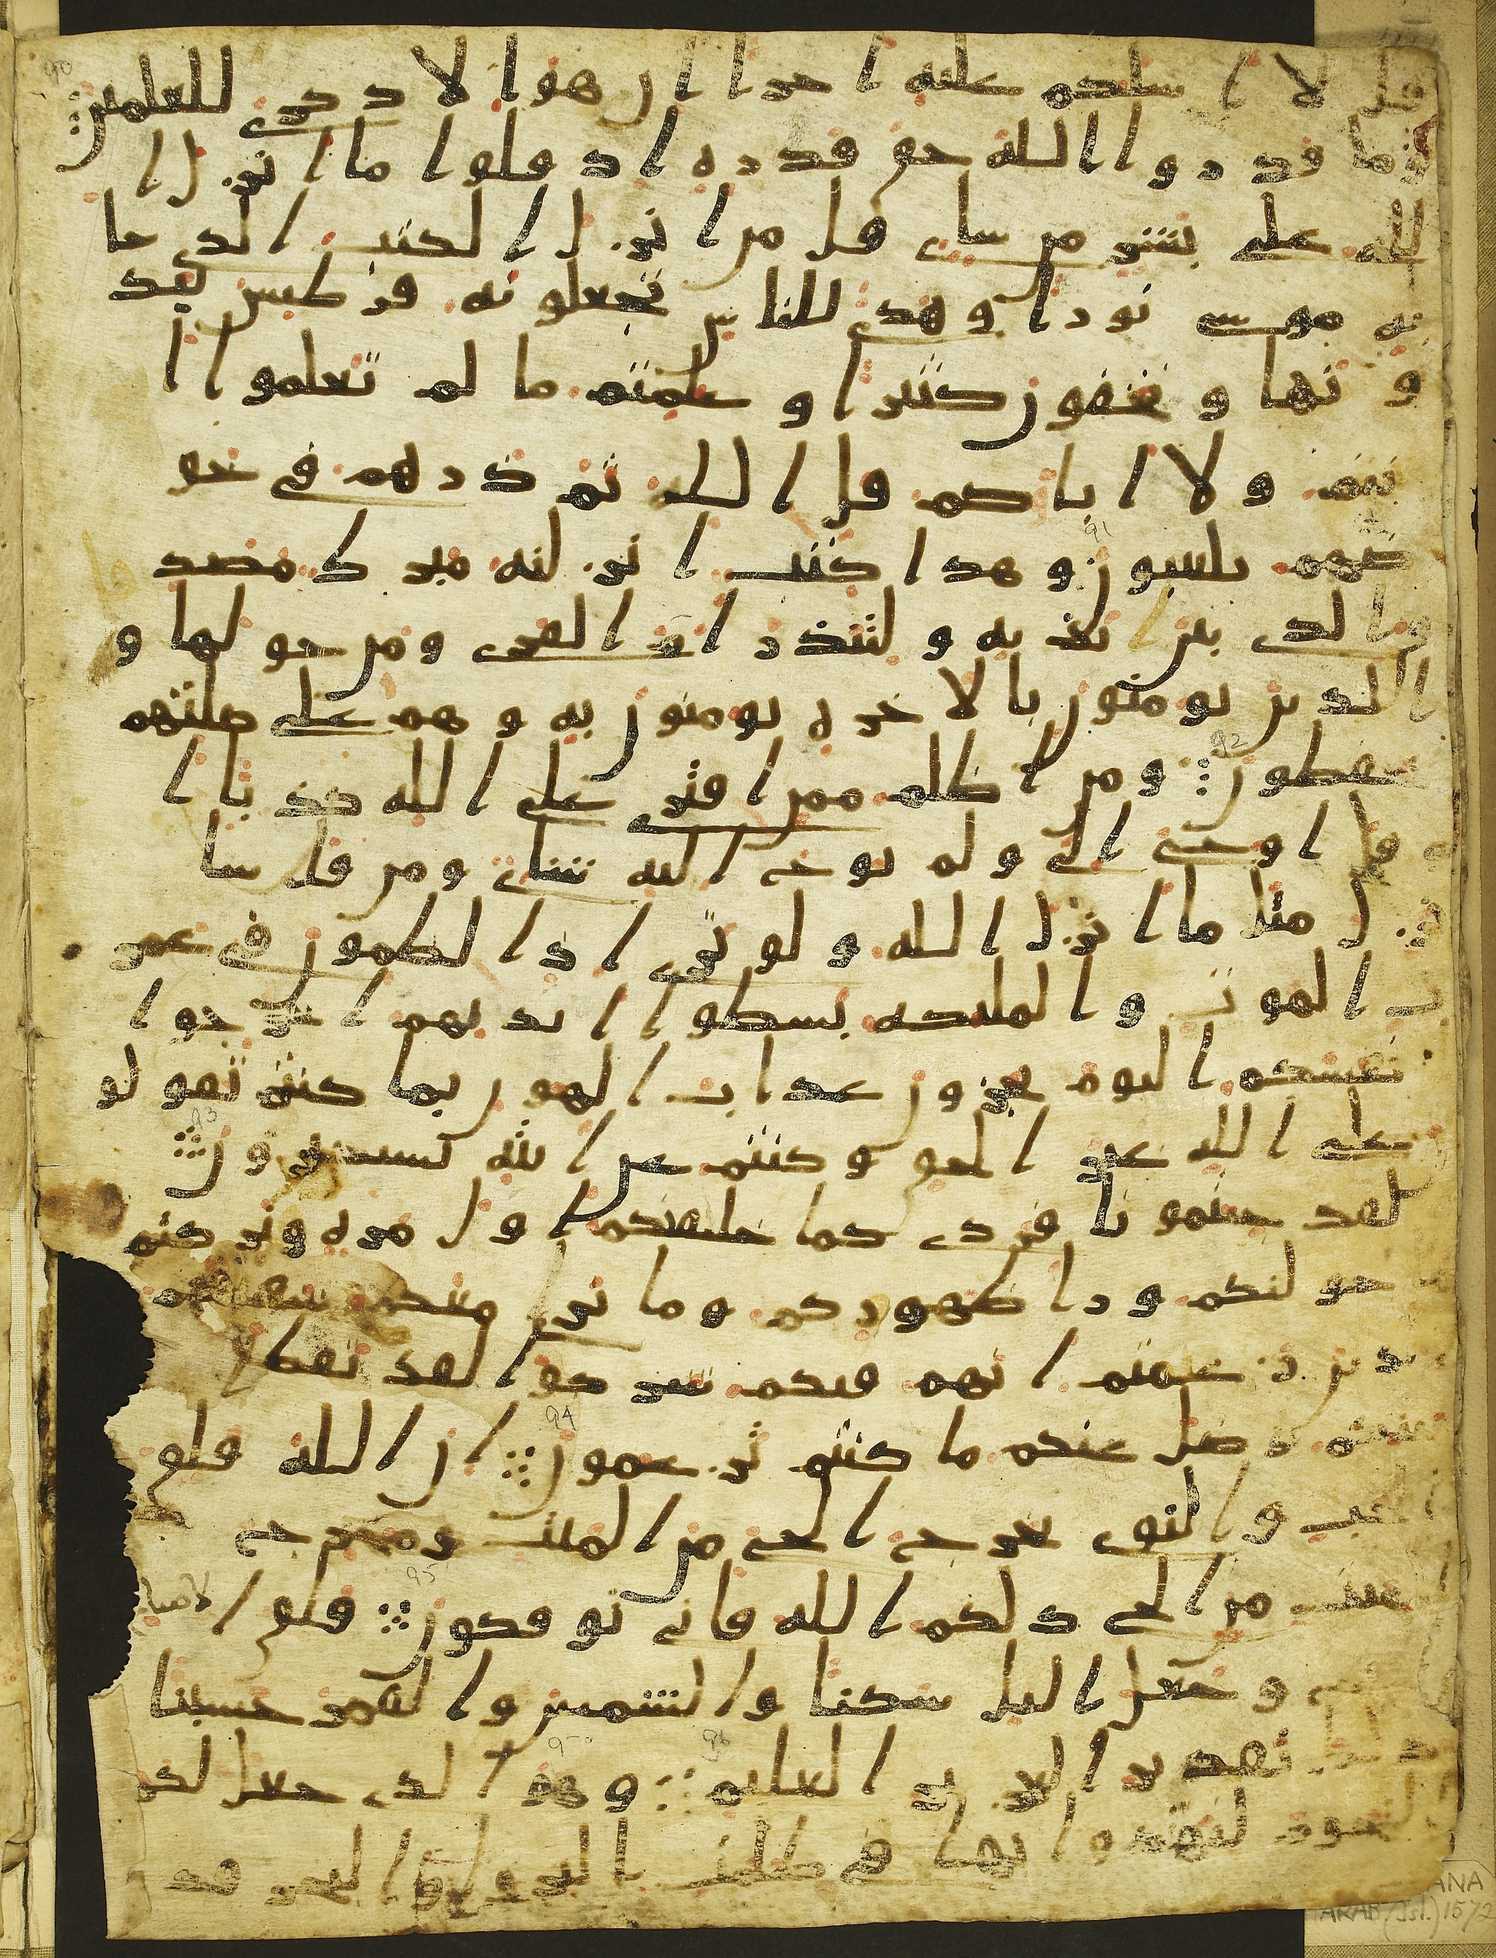 90
قل لا اسلكم عليه اجرا ان هو الا ذكرى للعلمين
وما قدروا الله حق قدره اذ قلوا ما انزل ا
لله على بشر من شاي قل من انزل الكتب الذي جا
به موسى نورا وهدى للناس تجعلونه قرطيس تبد
ونها وتخفون كثيرا وعلمتم ما لم تعلموا ا
نتم ولا اباكم قل الله ثم ذرهم في خو
ضهم يلعبون 91 وهذا كتب انزلنه مبرك مصد
ق الذي بين يديه ولتنذر ام القرى ومن حولها و
الذين يومنون بالاخره يومنون به وهم على صلتهم
يحفظون 92 ومن اظلم ممن افترى على الله كذبا ا
و قل اوحي الي ولم يوح اليه شاي ومن قل سا
نزل مثل ما انزل الله ولو ترى اذ الظلمون في غمر
ت الموت والمليكه بسطوا ايديهم اخرجوا ا
نفسكم اليوم تجزون عذاب الهون بما كنتم تقولو
على الله غير الحق وكنتم عن ايته تستكبرون 93
لقد جيتمونا فردى كما خلقنكم اول مره وتركتم
خولنكم ورا ظهوركم وما نرى معكم شفعكم
لذين زعمتم انهم فيكم شركوا لقد تقطع
بينكم وضل عنكم ما كنتم تزعمون 94 ان الله فلق
الحب والنوى يخرج الحي من الميت ومخرج
الميت من الحي ذلكم الله فانى توفكون 95 فلق الاصبا
ح وجعل اليل سكنا والشمس والقمر حسبنا
ذلك تقدير العزيز العليم 96 وهو الذي جعل لكم
النجوم لتهتدوا بها في ظلمت البر والبحر قد
ANA
ARAB (Isl.) 1572